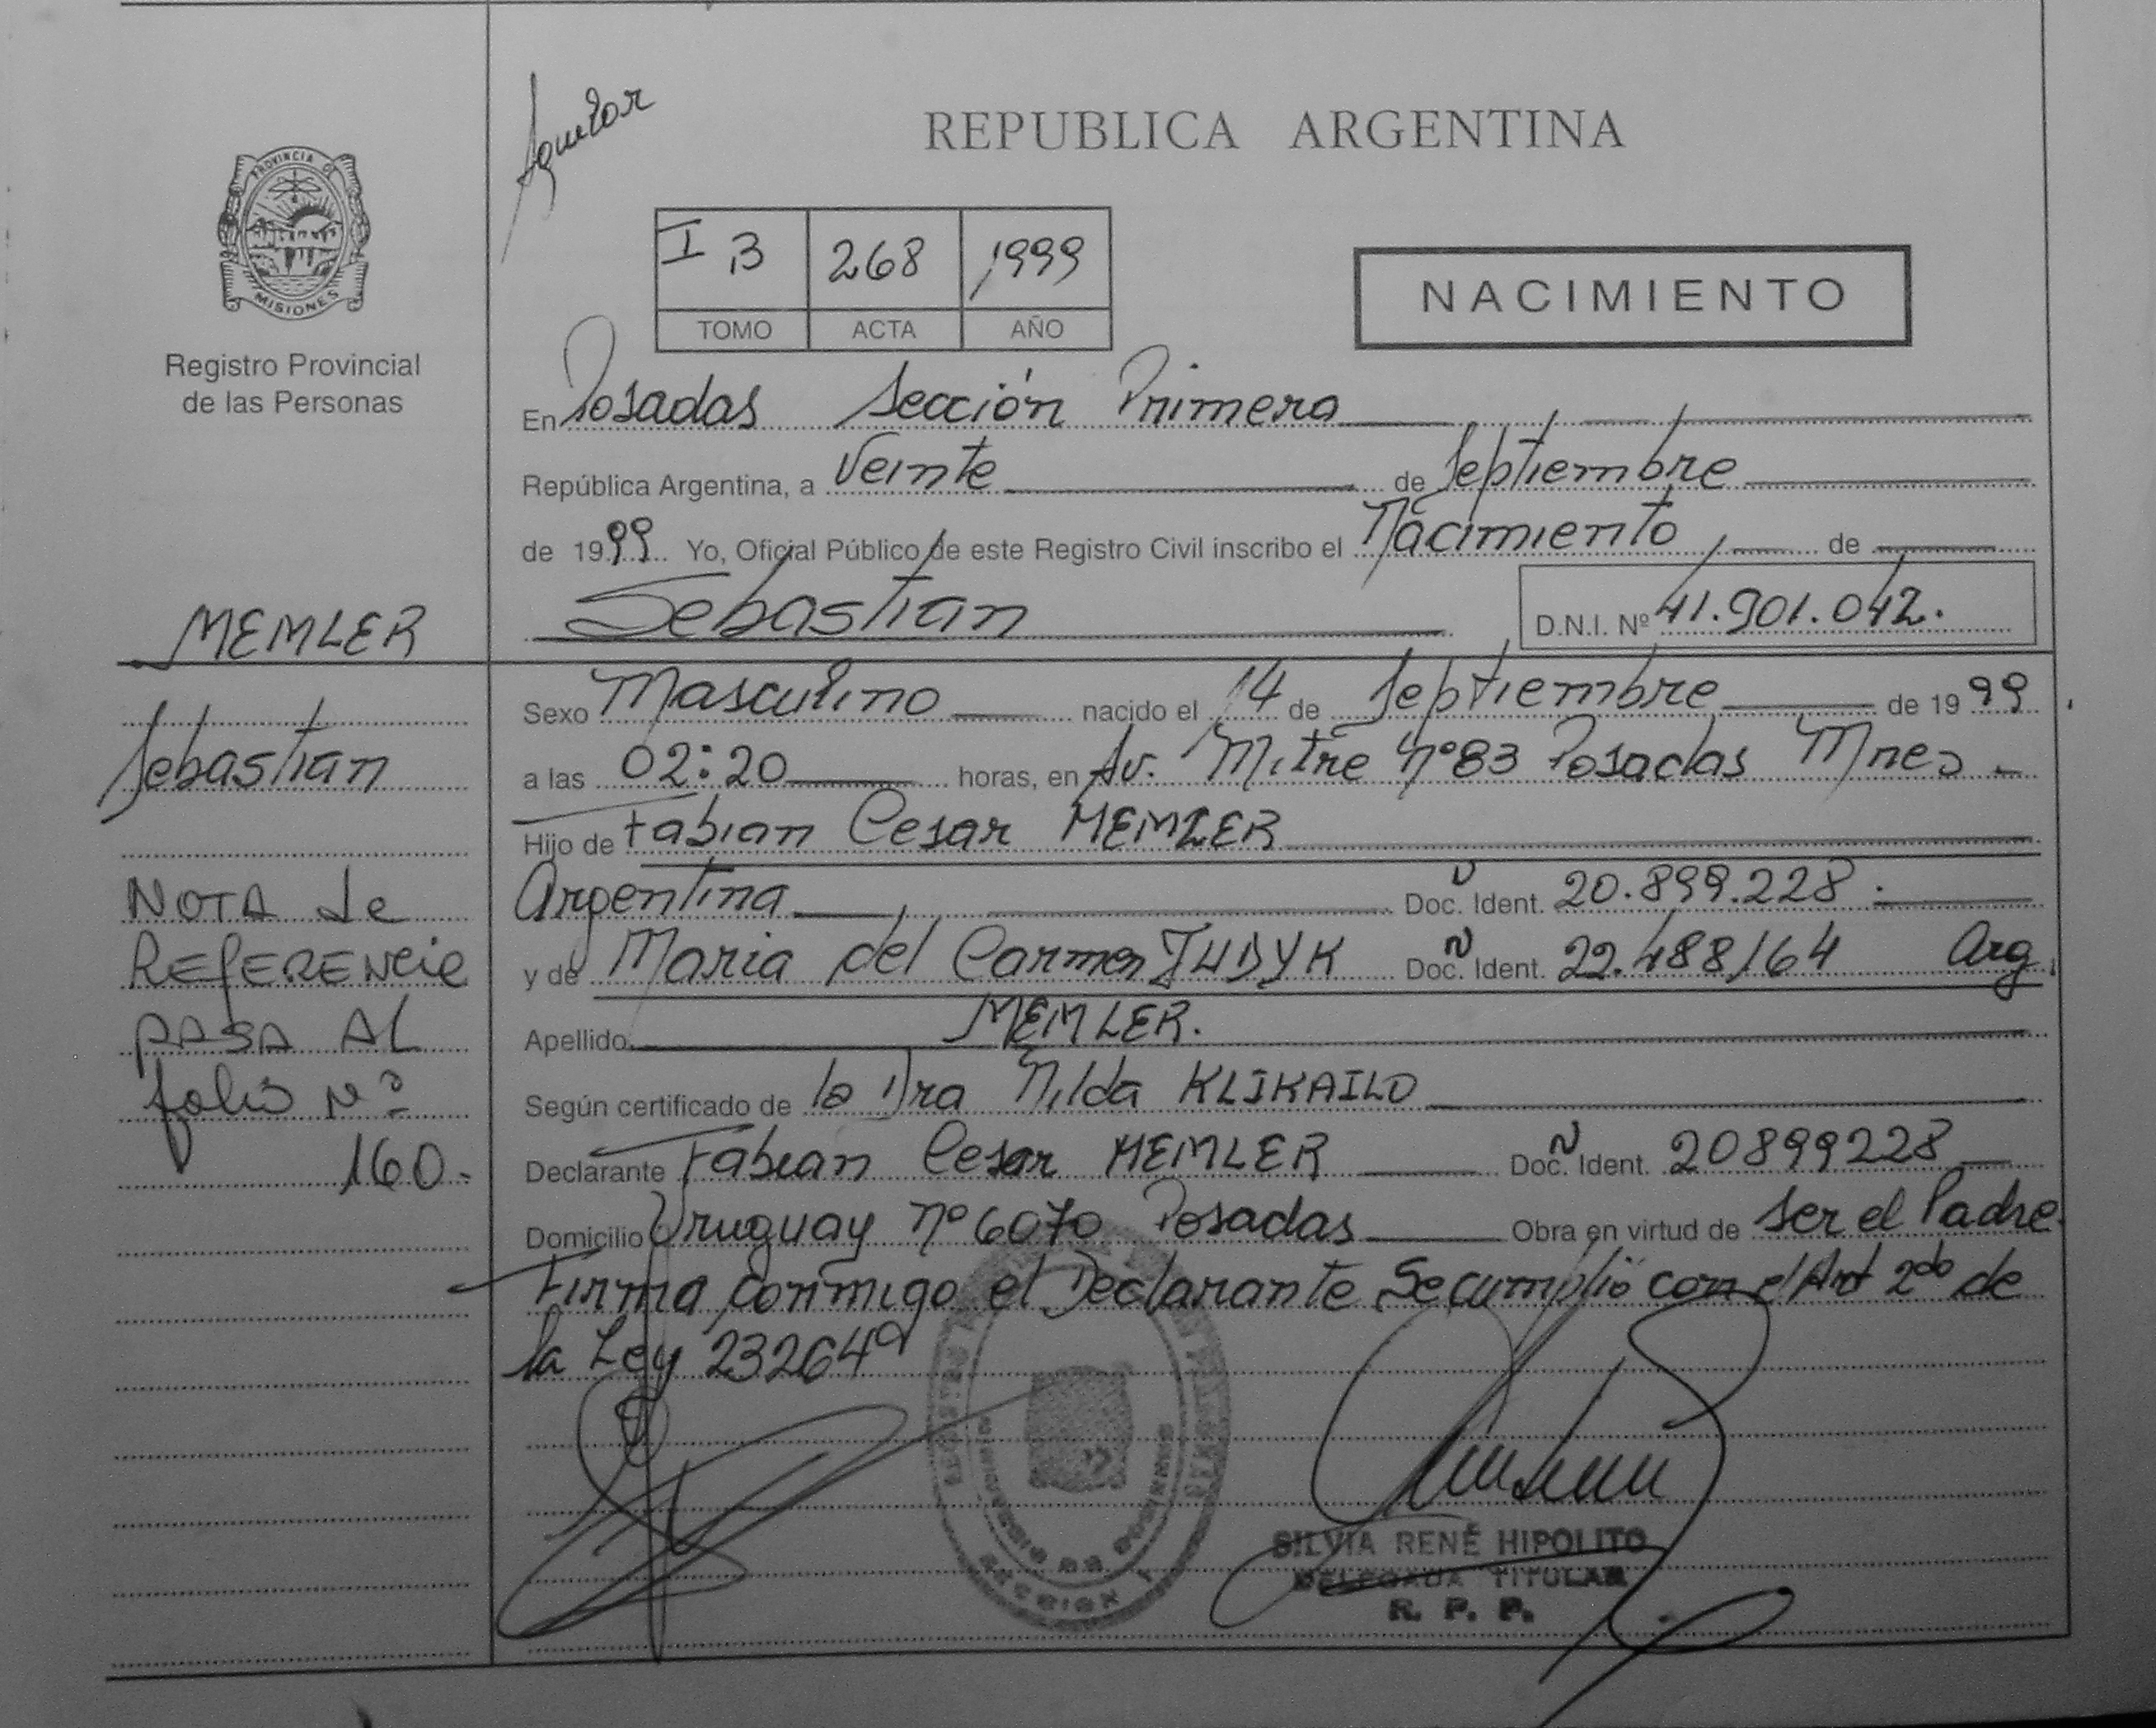 Aguilar
REPUBLICA ARGENTINA
PROVINCIA DE
MISIONES
Registro Provincial
de las Personas
I 3 268 1999
TOMO ACTA AÑO
NACIMIENTO
En Posadas Sección Primera
República Argentina, a Veinte de Septiembre
de 1999 Yo, Oficial Público de este Registro Civil inscribo el Nacimiento de
Sebastian
D.N.I. Nº 41.901.042.
MEMLER
Sebastian
NOTA de
REFERENCIA
PASA AL
folio Nº
160.
Sexo Masculino nacido el 14 de Septiembre de 1999
a las 02:20 horas, en Av. Mitre Nº 83 Posadas Mnes
Hijo de Fabian Cesar MEMLER
Argentina Doc. Ident. 20.899.228
y de Maria del Carmen Doc. Ident. 22.488164 Arg.
Apellido MEMLER.
Según certificado de la Dra Nilda KLIKAILO
Declarante Fabian Cesar MEMLER Doc. Ident. 20899228
Domicilio Uruguay nº 6070 Posadas Obra en virtud de ser el Padre
Firma conmigo el Declarante Se cumplió con el Art 2do de
la Ley 23264
SECCION 1
SILVIA RENÉ HIPOLITO
DELEGADA TITULAR
R. P. P.